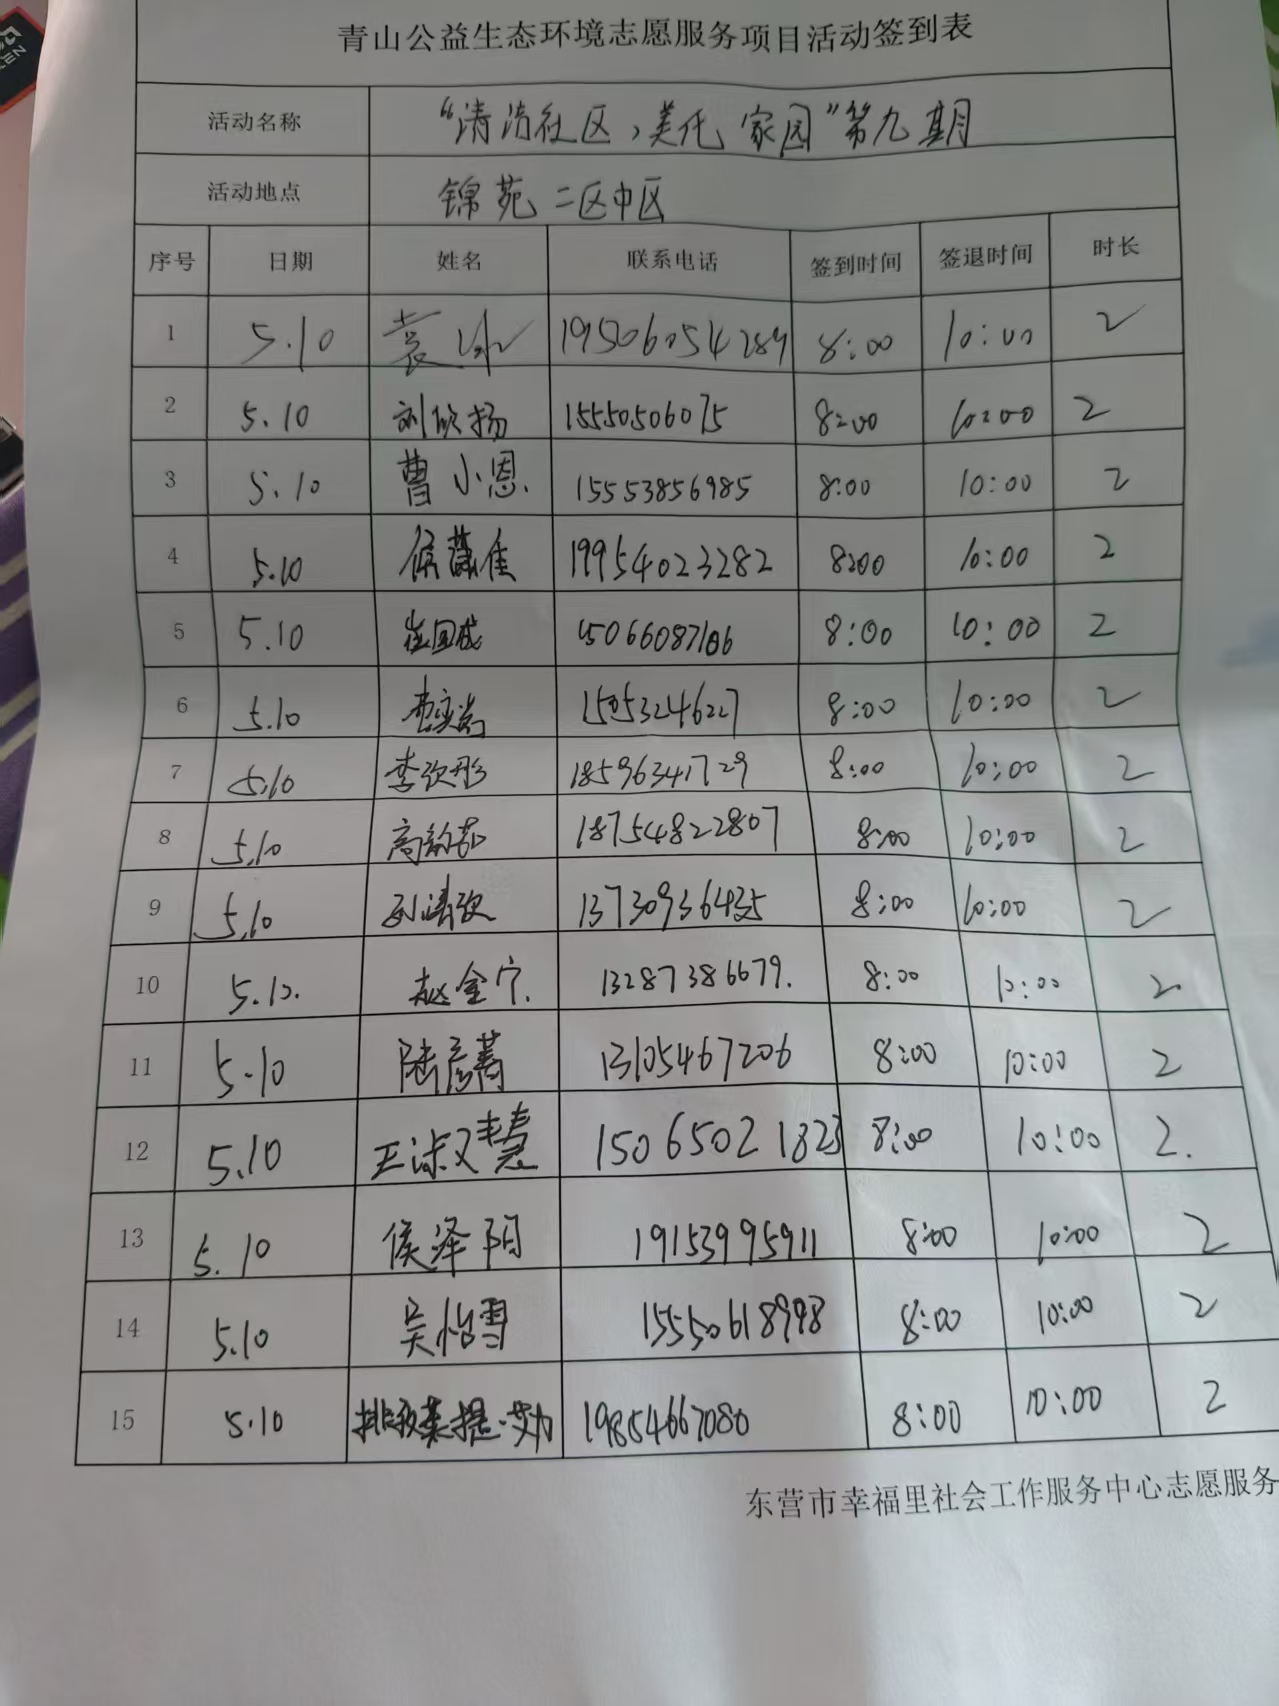 青山公益生态环境志愿服务项目活动签到表
活动名称 “清洁社区，美化家园”第九期
活动地点 锦苑二区中区
序号 日期 姓名 联系电话 签到时间 签退时间 时长
1 5.10 袁冰 19506054289 8:00 10:00 2
2 5.10 刘欣扬 15550506075 8:00 10:00 2
3 5.10 曹小恩. 15553856985 8:00 10:00 2
4 5.10 侯佳 19954023282 8:00 10:00 2
5 5.10 崔国成 15066087106 8:00 10:00 2
6 5.10 8:00 10:00 2
7 5.10 李欣彤 18596341729 8:00 10:00 2
8 5.10 高韵茹 18754822807 8:00 10:00 2
9 5.10 13730936435 8:00 10:00 2
10 5.10. 赵金宁. 13287386679. 8:00 10:00 2
11 5.10 陆彦菁 13105467206 8:00 10:00 2
12 5.10 王淑慧 15065021823 8:00 10:00 2.
13 5.10 侯泽阳 19153995911 8:00 10:00 2
14 5.10 吴怡雪 15550618998 8:00 10:00 2
15 5.10 19854667080 8:00 10:00 2
东营市幸福里社会工作服务中心志愿服务